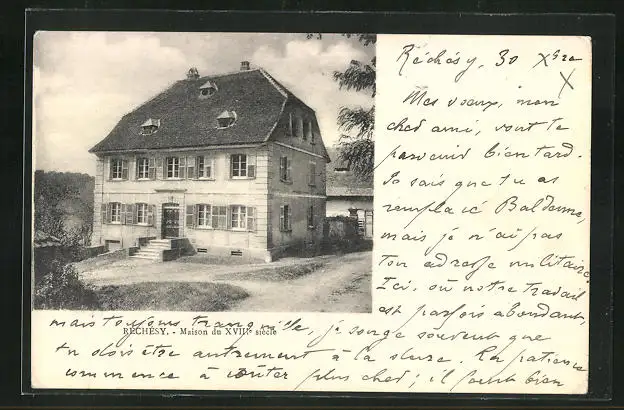 Réchésy, 30 Xbre
Mes vœux, mon
cher ami, vont te
parvenir bien tard.
Je sais que tu as
remplacé
mais je n'ai pas
ton adresse militaire.
Ici, où notre travail
est parfois abondant,
mais toujours tranquille, je songe souvent que
RÉCHÉSY. - Maison du XVIIIe siècle
tu dois être autrement à la
La patience
commence à coûter plus cher ; il faut bien